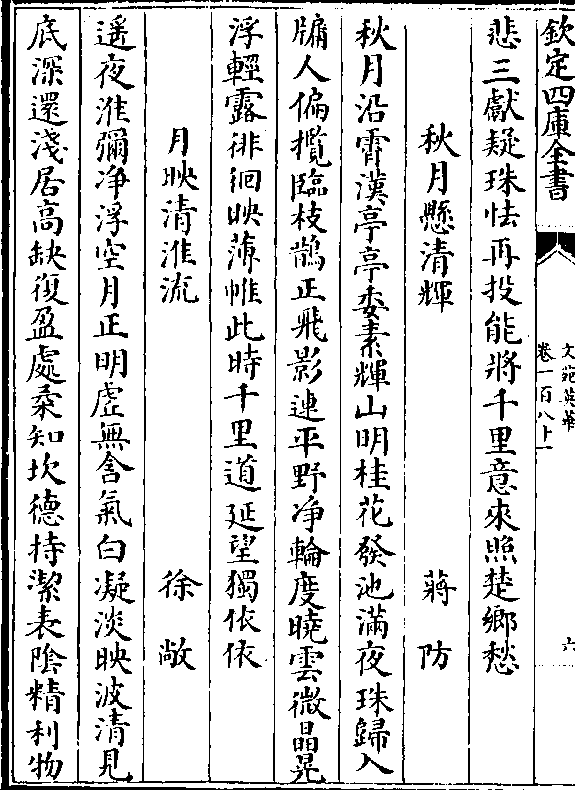 欽定四庫全書
文苑英華
卷一百八十一
六
悲三獻疑珠怯再投能將千里意來照楚鄉愁
秋月懸清輝 蔣防
秋月沿霄漢亭亭委素輝山明桂花發池滿夜珠歸入
牖人偏攬臨枝鵲正飛影連平野净輪度曉雲微晶晃
浮輕露徘徊映薄帷此時千里道延望獨依依
月映清淮流 徐敞
遥夜淮彌净浮空月正明虚無含氣白凝淡映波清見
底深還淺居高缺復盈處柔知坎德持潔表陰精利物